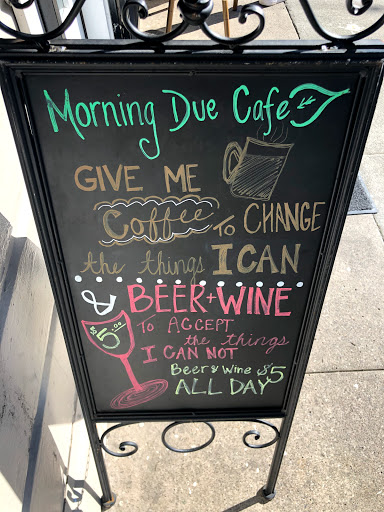 Morning Due Cafe
GIVE ME
Coffee TO CHANGE
the things I CAN
& BEER + WINE
$5.00
TO ACCEPT
the things
I CAN NOT
Beer & Wine $5
ALL DAY